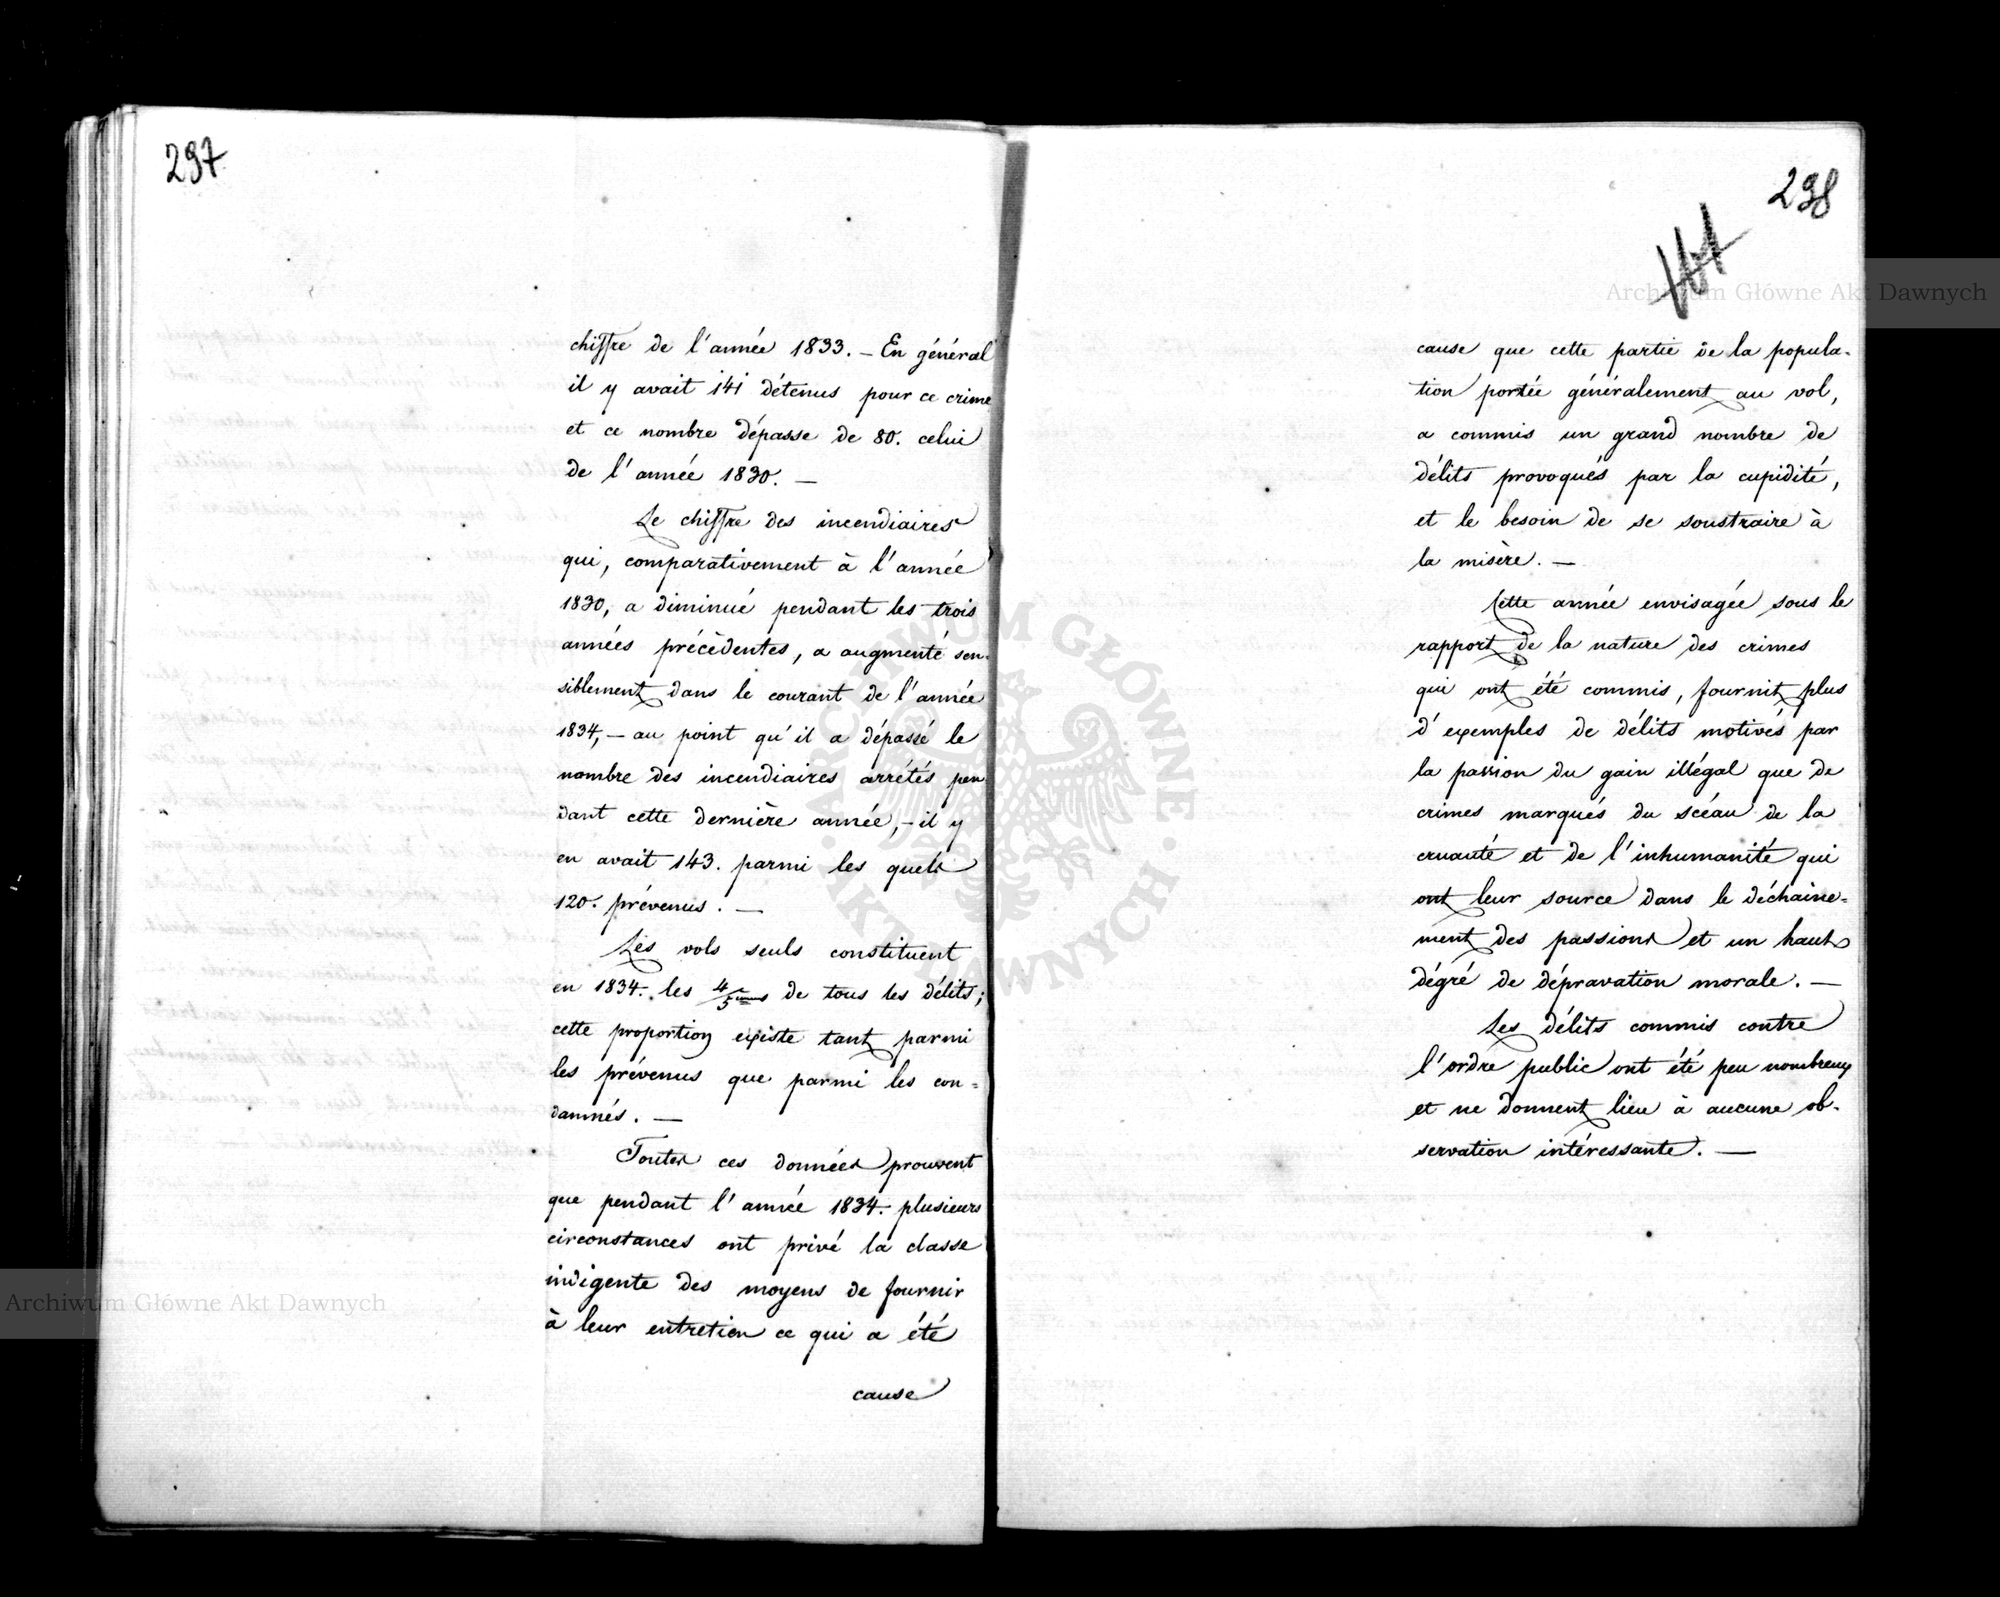 297
chiffre de l'année 1833. – En général
il y avait 141 détenus pour ce crime
et ce nombre dépasse de 80. celui
de l'année 1830. —
Le chiffre des incendiaires
qui, comparativement à l'année
1830, a diminué pendant les trois
années précèdentes, a augmenté sen-
siblement dans le courant de l'année
1834, – au point qu'il a dépassé le
nombre des incendiaires arrétés pen
dant cette dernière année, – il y
en avait 143. parmi les quels
120. prévenus. —
Les vols seuls constituent
en 1834. les 4/5èmes de tous les délits;
cette proportion existe tant parmi
les prévenus que parmi les con=
damnés. —
Toutes ces données prouvent
que pendant l'année 1834. plusieurs
circonstances ont privé la classe
indigente des moyens de fournir
à leur entretien ce qui a été
cause
238
Archiwum Główne Akt Dawnych
cause que cette partie de la popula-
tion portée généralement au vol,
a commis un grand nombre de
délits provoqués par la cupidité,
et le besoin de se soustraire à
la misère. —
Cette année envisagée sous le
rapport de la nature des crimes
qui ont été commis, fournit plus
d'exemples de délits motivés par
la passion du gain illégal que de
crimes marqués du scéau de la
cruauté et de l'inhumanité qui
ont leur source dans le déchaine=
ment des passions et un haut
dégré de dépravation morale. —
Les délits commis contre
l'ordre public ont été peu nombreux
et ne donnent lieu à aucune ob-
servation intéressante. —
Archiwum Główne Akt Dawnych
ARCHIWUM GŁÓWNE · AKT DAWNYCH ·